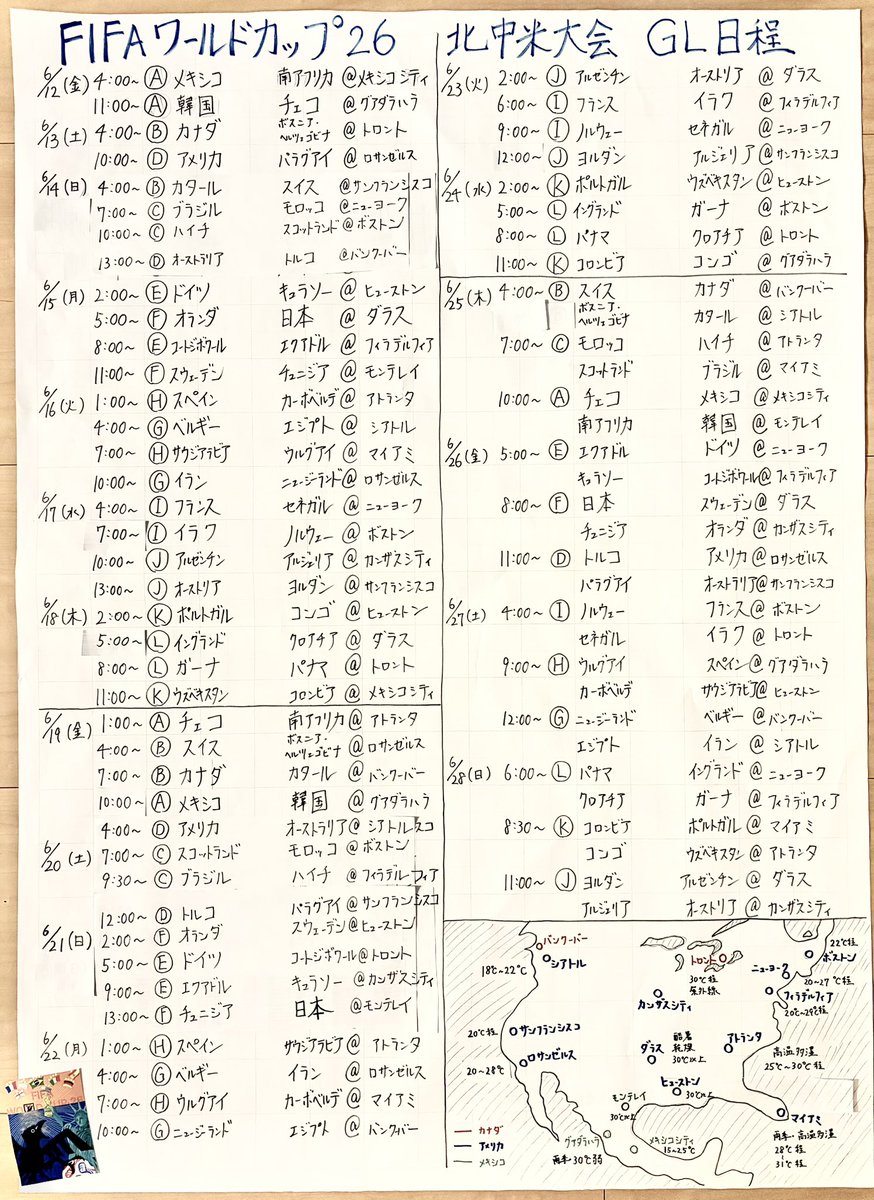 FIFAワールドカップ26 北中米大会 GL日程
6/12(金) 4:00~ Ⓐ メキシコ 南アフリカ @メキシコシティ
11:00~ Ⓐ 韓国 チェコ @グアダラハラ
6/13(土) 4:00~ Ⓑ カナダ ボスニア・ヘルツェゴビナ @トロント
10:00~ Ⓓ アメリカ パラグアイ @ロサンゼルス
6/14(日) 4:00~ Ⓑ カタール スイス @サンフランシスコ
7:00~ Ⓒ ブラジル モロッコ @ニューヨーク
10:00~ Ⓒ ハイチ スコットランド@ボストン
13:00~ Ⓓ オーストラリア トルコ @バンクーバー
6/15(月) 2:00~ Ⓔ ドイツ キュラソー @ ヒューストン
5:00~ Ⓕ オランダ 日本 @ ダラス
8:00~ Ⓔ コートジボワール エクアドル @ フィラデルフィア
11:00~ Ⓕ スウェーデン チュニジア @ モンテレイ
6/16(火) 1:00~ Ⓗ スペイン カーボベルデ@ アトランタ
4:00~ Ⓖ ベルギー エジプト @ シアトル
7:00~ Ⓗ サウジアラビア ウルグアイ @ マイアミ
10:00~ Ⓖ イラン ニュージーランド@ロサンゼルス
6/17(水) 4:00~ Ⓘ フランス セネガル @ ニューヨーク
7:00~ Ⓘ イラク ノルウェー @ ボストン
10:00~ Ⓙ アルゼンチン アルジェリア @ カンザスシティ
13:00~ Ⓙ オーストリア ヨルダン @ サンフランシスコ
6/18(木) 2:00~ Ⓚ ポルトガル コンゴ @ ヒューストン
5:00~ Ⓛ イングランド クロアチア @ ダラス
8:00~ Ⓛ ガーナ パナマ @ トロント
11:00~ Ⓚ ウズベキスタン コロンビア @ メキシコシティ
6/19(金) 1:00~ Ⓐ チェコ 南アフリカ@ アトランタ
4:00~ Ⓑ スイス ボスニア・ヘルツェゴビナ @ロサンゼルス
7:00~ Ⓑ カナダ カタール @ バンクーバー
10:00~ Ⓐ メキシコ 韓国 @ グアダラハラ
4:00~ Ⓓ アメリカ オーストラリア@ シアトルスコ
6/20(土) 7:00~ Ⓒ スコットランド モロッコ @ボストン
9:30~ Ⓒ ブラジル ハイチ @ フィラデルーフィア
12:00~ Ⓓ トルコ パラグアイ @サンフランシスコ
6/21(日) 2:00~ Ⓕ オランダ スウェーデン@ヒューストン
5:00~ Ⓔ ドイツ コートジボワール@トロント
9:00~ Ⓔ エクアドル キュラソー @カンザスシティ
13:00~ Ⓕ チュニジア 日本 @モンテレイ
6/22(月) 1:00~ Ⓗ スペイン サウジアラビア@ アトランタ
4:00~ Ⓖ ベルギー イラン @ ロサンゼルス
7:00~ Ⓗ ウルグアイ カーボベルデ@ マイアミ
10:00~ Ⓖ ニュージーランド エジプト @ バンクーバー
6/23(火) 2:00~ Ⓙ アルゼンチン オーストリア@ ダラス
6:00~ Ⓘ フランス イラク @フィラデルフィア
9:00~ Ⓘ ノルウェー セネガル @ニューヨーク
12:00~ Ⓙ ヨルダン アルジェリア@サンフランシスコ
6/24(水) 2:00~ Ⓚ ポルトガル ウズベキスタン@ ヒューストン
5:00~ Ⓛ イングランド ガーナ @ ボストン
8:00~ Ⓛ パナマ クロアチア @ トロント
11:00~ Ⓚ コロンビア コンゴ @ グアダラハラ
6/25(木) 4:00~ Ⓑ スイス カナダ @バンクーバー
ボスニア・ヘルツェゴビナ カタール @ シアトル
7:00~ Ⓒ モロッコ ハイチ @アトランタ
スコットランド ブラジル @ マイアミ
10:00~ Ⓐ チェコ メキシコ @メキシコシティ
南アフリカ 韓国 @ モンテレイ
6/26(金) 5:00~ Ⓔ エクアドル ドイツ @ ニューヨーク
キュラソー コートジボワール@フィラデルフィア
8:00~ Ⓕ 日本 スウェーデン@ ダラス
チュニジア オランダ @カンザスシティ
11:00~ Ⓓ トルコ アメリカ @ロサンゼルス
パラグアイ オーストラリア@サンフランシスコ
6/27(土) 4:00~ Ⓘ ノルウェー フランス@ ボストン
セネガル イラク @ トロント
9:00~ Ⓗ ウルグアイ スペイン@グアダラハラ
カーボベルデ サウジアラビア@ ヒューストン
12:00~ Ⓖ ニュージーランド ベルギー @バンクーバー
エジプト イラン @ シアトル
6/28(日) 6:00~ Ⓛ パナマ イングランド@ ニューヨーク
クロアチア ガーナ @フィラデルフィア
8:30~ Ⓚ コロンビア ポルトガル@ マイアミ
コンゴ ウズベキスタン@ アトランタ
11:00~ Ⓙ ヨルダン アルゼンチン @ ダラス
アルジェリア オーストリア @ カンザスシティ
バンクーバー
シアトル
18℃~22℃
トロント
30℃程
屋外線
22℃程
ボストン
ニューヨーク
20~27℃程
フィラデルフィア
20℃~29℃程
カンザスシティ
20℃程
サンフランシスコ
ロサンゼルス
20~28℃
ダラス
酷暑
乾燥
30℃以上
アトランタ
高温多湿
25℃~30℃程
ヒューストン
30℃以上
モンテレイ
30℃以上
マイアミ
雨季・高温多湿
28℃
~
31℃程
グアダラハラ
雨季30℃弱
メキシコシティ
15~25℃
カナダ
アメリカ
メキシコ
FIFA